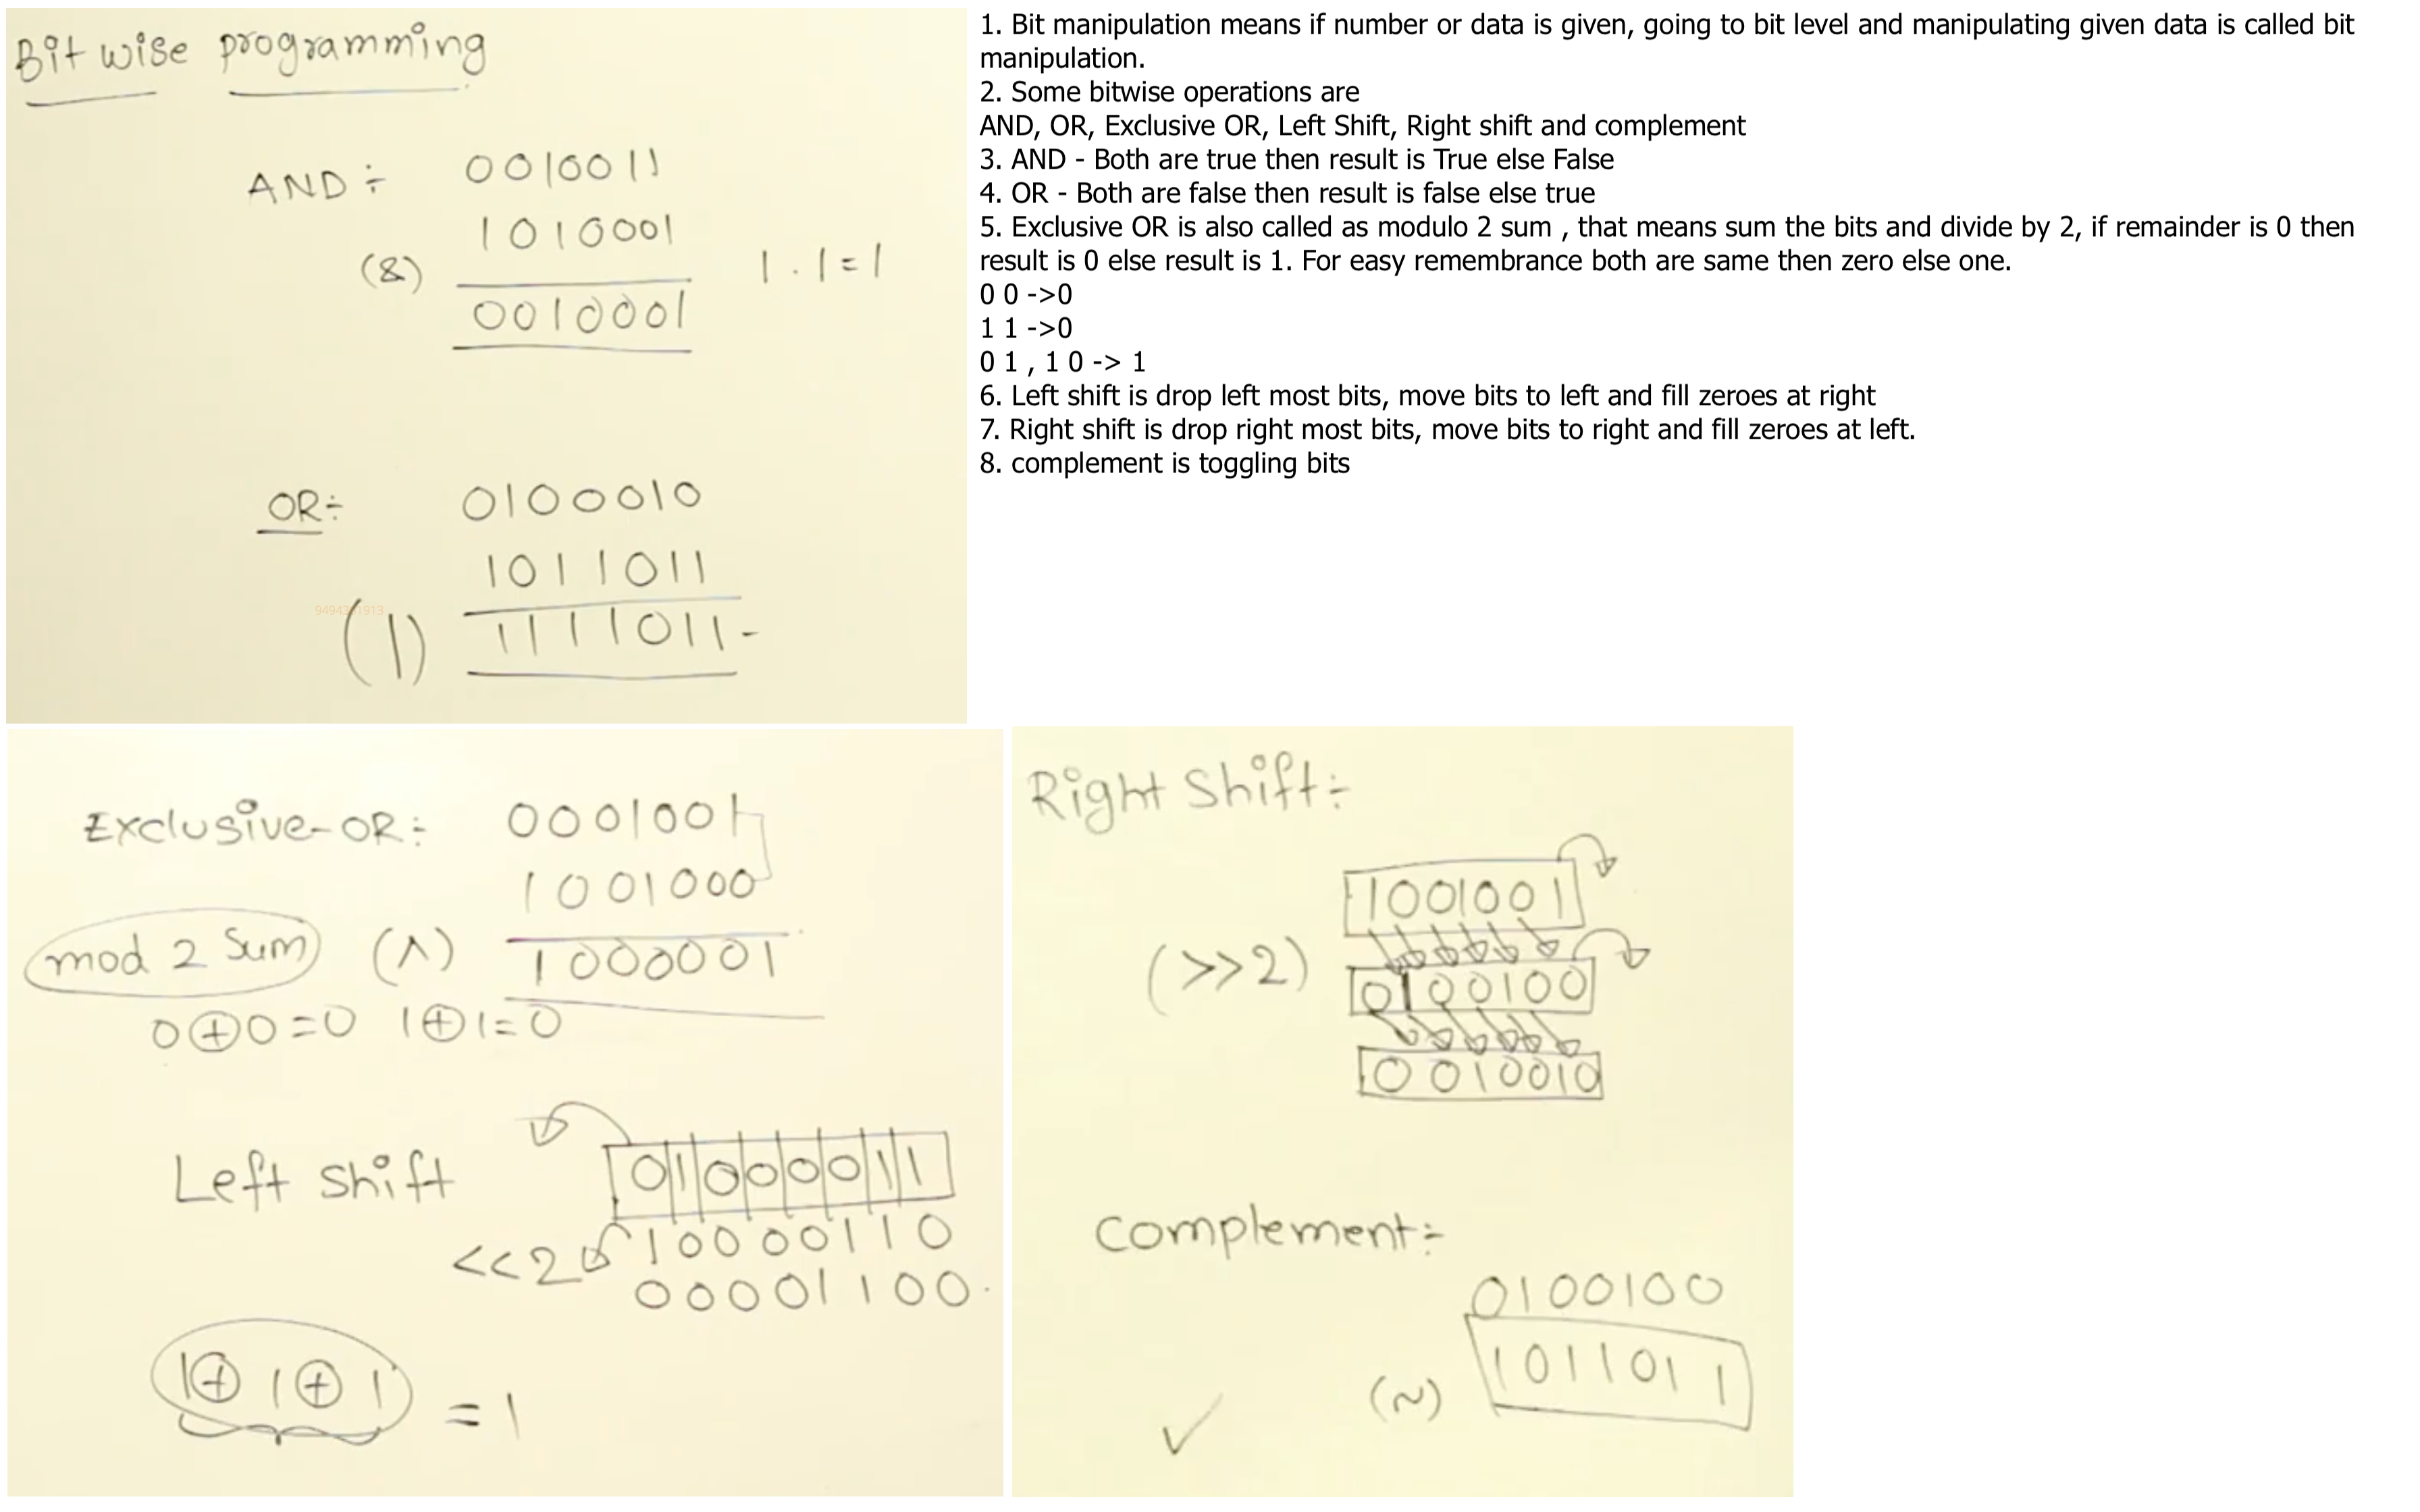 Bit wise programming
AND ÷ 0010011
1010001
(&) 1 . 1 = 1
0010001
OR÷ 0100010
1011011
(|) 1111011-
1. Bit manipulation means if number or data is given, going to bit level and manipulating given data is called bit
manipulation.
2. Some bitwise operations are
AND, OR, Exclusive OR, Left Shift, Right shift and complement
3. AND - Both are true then result is True else False
4. OR - Both are false then result is false else true
5. Exclusive OR is also called as modulo 2 sum , that means sum the bits and divide by 2, if remainder is 0 then
result is 0 else result is 1. For easy remembrance both are same then zero else one.
0 0 ->0
1 1 ->0
0 1 , 1 0 -> 1
6. Left shift is drop left most bits, move bits to left and fill zeroes at right
7. Right shift is drop right most bits, move bits to right and fill zeroes at left.
8. complement is toggling bits
Exclusive-OR÷ 0001001
1001000
mod 2 Sum (^) 1000001
0⊕0=0 1⊕1=0
Left shift 01000011
<<2 10000110
00001100.
1⊕1⊕1 = 1
Right Shift÷
1001001
(>>2) 0100100
0010010
Complement÷
0100100
(~) 1011011